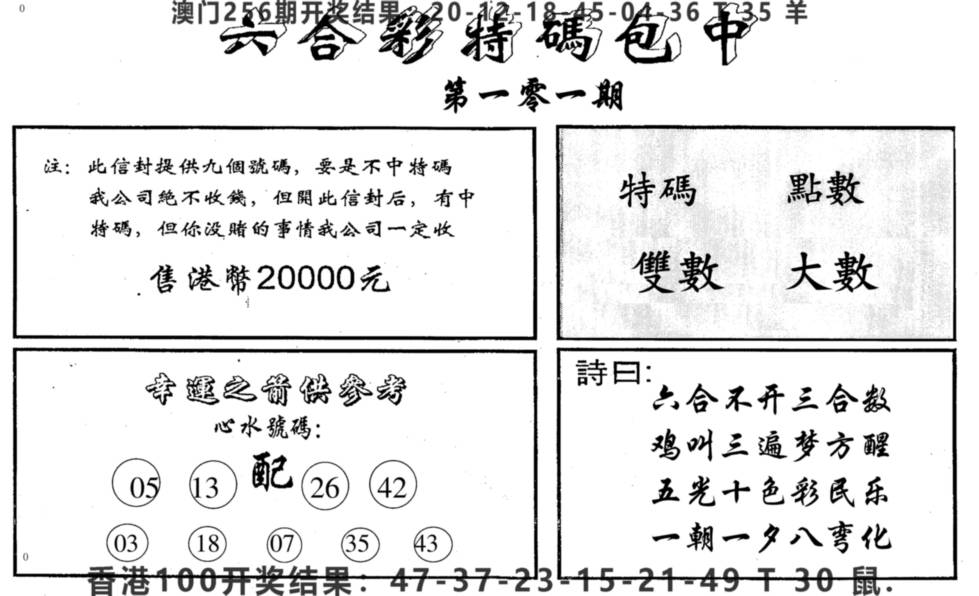 澳门256期开奖结果 20-12-18-45-04-36 T 35 羊
六合彩特碼包中
第一零一期
注：此信封提供九個號碼，要是不中特碼
我公司絕不收錢，但開此信封后，有中
特碼，但你没賭的事情我公司一定收
售港幣20000元
特碼 點數
雙數 大數
幸運之箭供參考
心水號碼：
05 13 配 26 42
03 18 07 35 43
詩曰：
六合不开三合数
鸡叫三遍梦方醒
五光十色彩民乐
一朝一夕八弯化
香港100开奖结果：47-37-23-15-21-49 T 30 鼠.